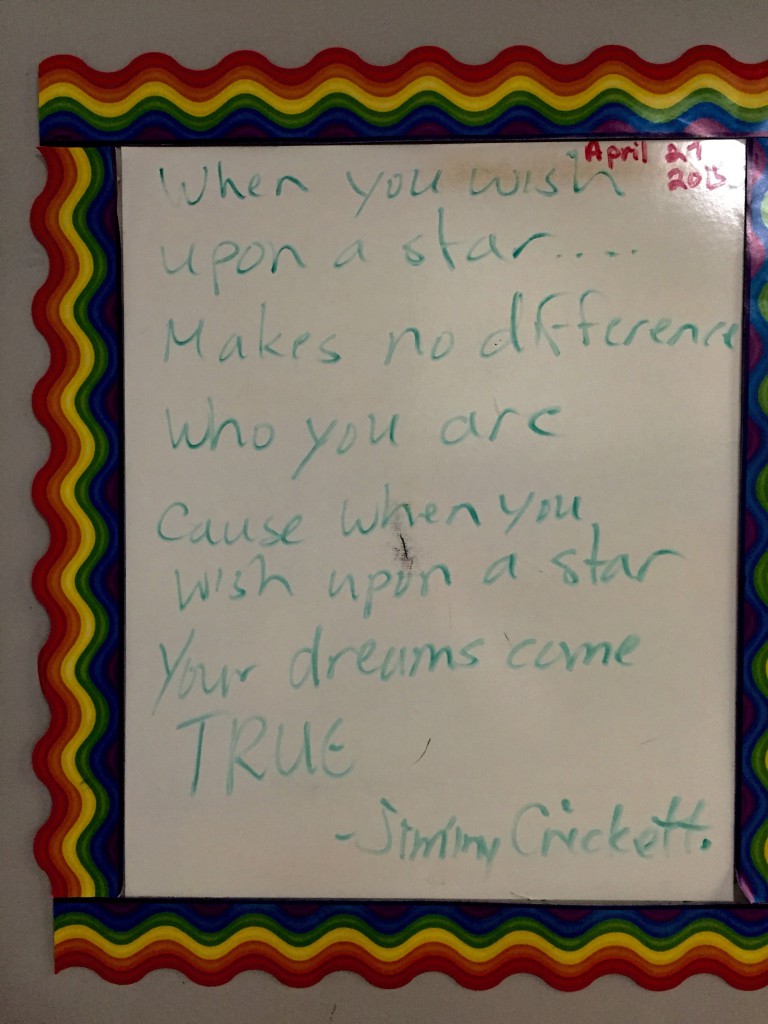 April 27
2015
When you wish
upon a star....
Makes no difference
who you are
Cause when you
wish upon a star
Your dreams come
TRUE
-Jiminy Crickett.